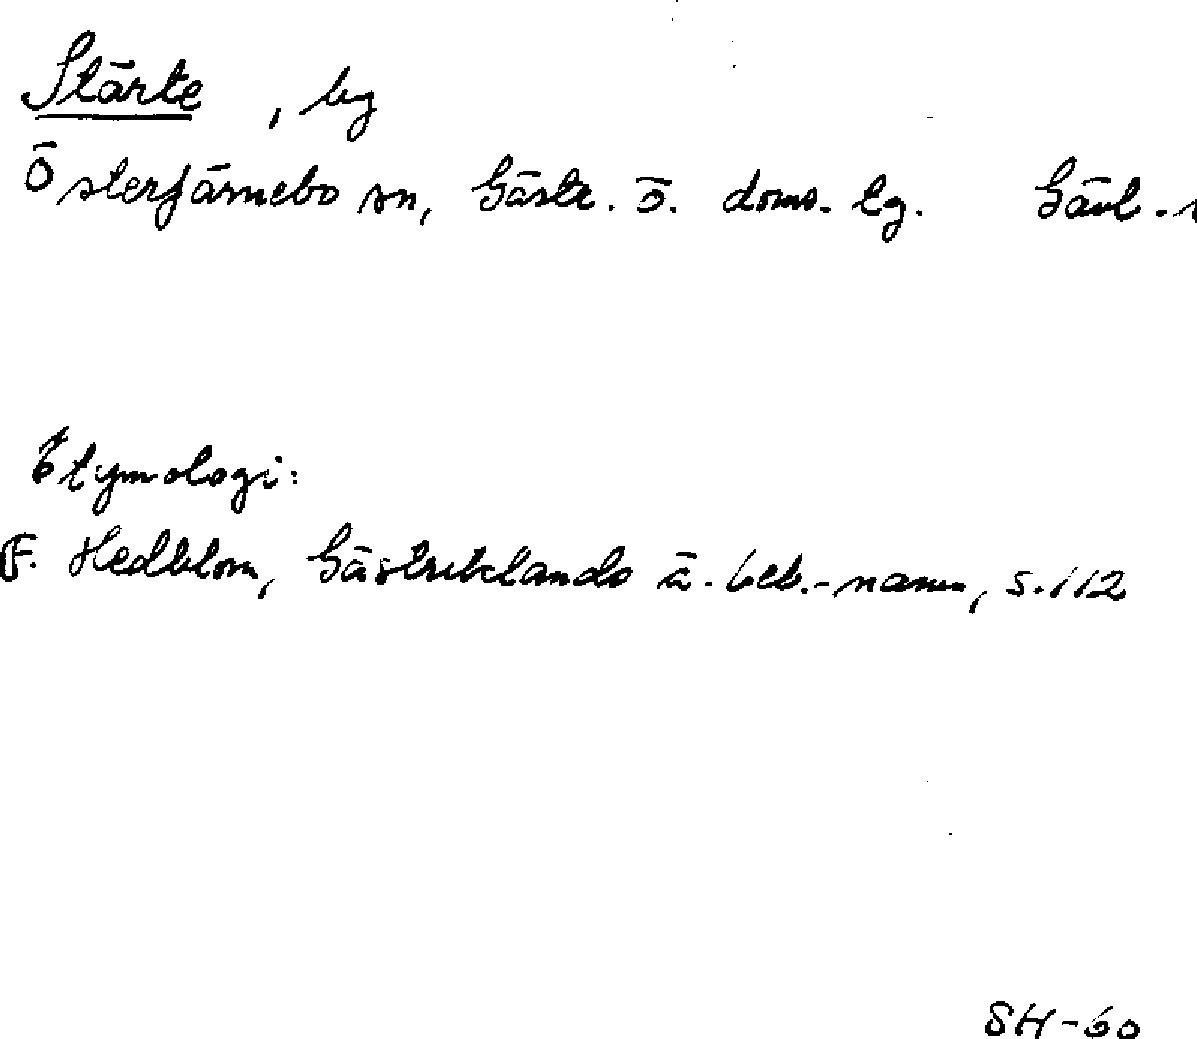 Stärte, by
Österfärnebo sn, Gästr. ö. doms. tg. Gävl.
Etymologi:
F. Hedblom, Gästriklands ä. beb.-namn, s. 112
SH-60